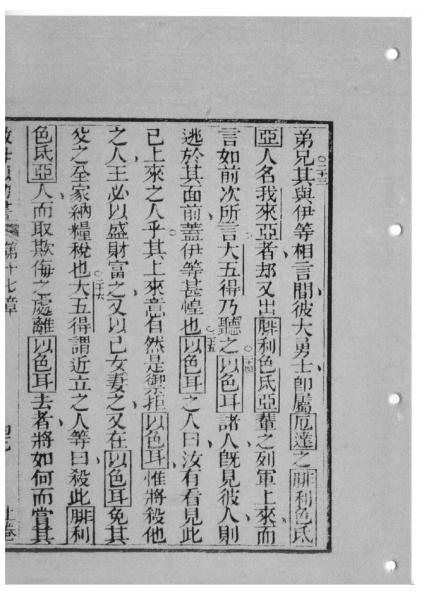 弟兄其與伊等相言間彼大勇士卽屬厄達之腓利色氏
亞人名我來亞者却又出腓利色氏亞輩之列軍上來而
言如前次所言大五得乃聽之以色耳諸人旣見彼人則
逃於其面前蓋伊等甚惶也以色耳之人曰汝有看見此
已上來之人乎其上來意自然是御拒以色耳惟將殺他
之人王必以盛財富之又以己女妻之又在以色耳免其
父之全家納糧稅也大五得謂近立之人等曰殺此腓利
色氏亞人而取欺侮之處離以色耳去者將如何而當其
第十七章